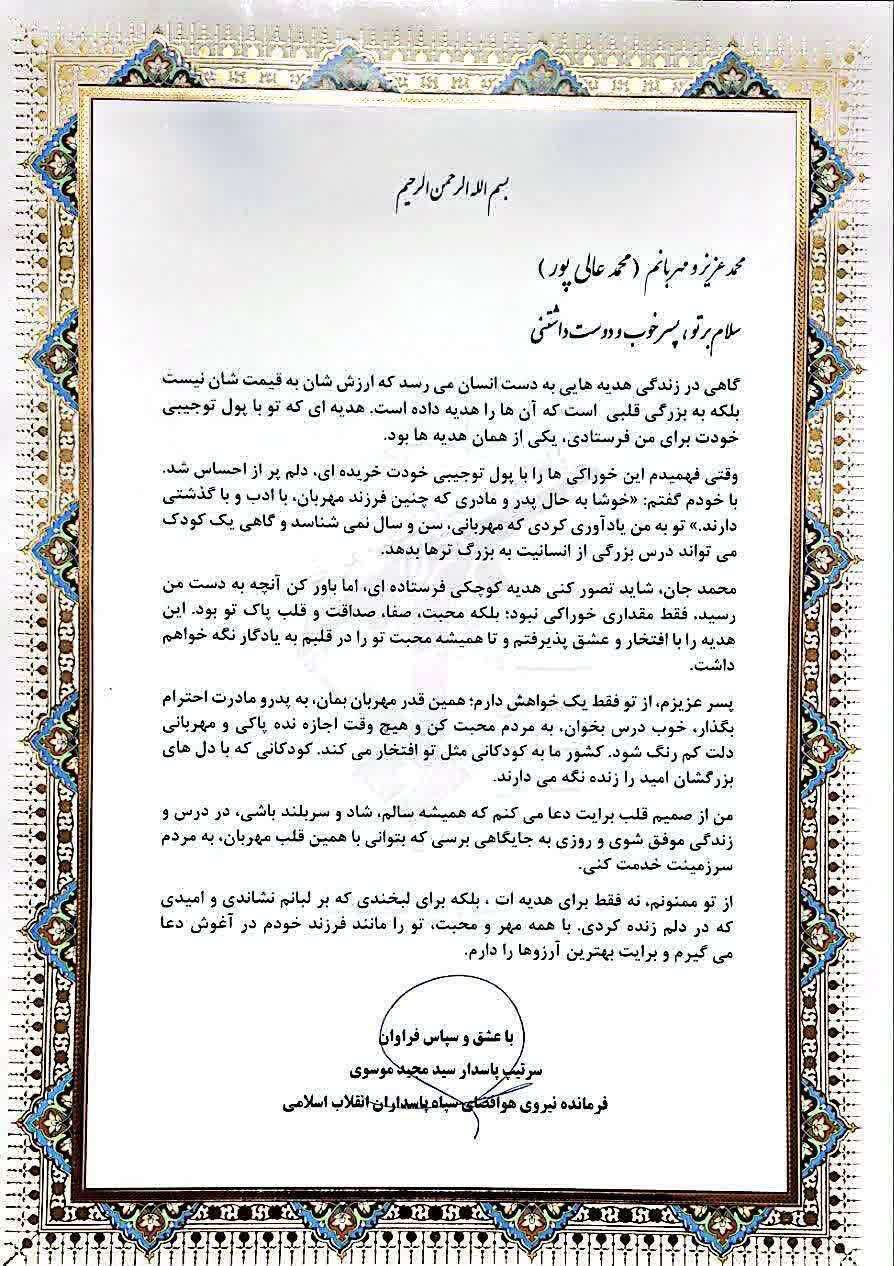 بسم الله الرحمن الرحیم
محمد عزیز و مهربانم (محمد عالی پور)
سلام بر تو، پسر خوب و دوست داشتنی
گاهی در زندگی هدیه هایی به دست انسان می رسد که ارزش شان به قیمت شان نیست
بلکه به بزرگی قلبی است که آن ها را هدیه داده است. هدیه ای که تو با پول توجیبی
خودت برای من فرستادی، یکی از همان هدیه ها بود.
وقتی فهمیدم این خوراکی ها را با پول توجیبی خودت خریده ای، دلم پر از احساس شد.
با خودم گفتم: «خوشا به حال پدر و مادری که چنین فرزند مهربان، با ادب و با گذشتی
دارند.» تو به من یادآوری کردی که مهربانی، سن و سال نمی شناسد و گاهی یک کودک
می تواند درس بزرگی از انسانیت به بزرگ ترها بدهد.
محمد جان، شاید تصور کنی هدیه کوچکی فرستاده ای، اما باور کن آنچه به دست من
رسید، فقط مقداری خوراکی نبود؛ بلکه محبت، صفا، صداقت و قلب پاک تو بود. این
هدیه را با افتخار و عشق پذیرفتم و تا همیشه محبت تو را در قلبم به یادگار نگه خواهم
داشت.
پسر عزیزم، از تو فقط یک خواهش دارم؛ همین قدر مهربان بمان، به پدرو مادرت احترام
بگذار، خوب درس بخوان، به مردم محبت کن و هیچ وقت اجازه نده پاکی و مهربانی
دلت کم رنگ شود. کشور ما به کودکانی مثل تو افتخار می کند. کودکانی که با دل های
بزرگشان امید را زنده نگه می دارند.
من از صمیم قلب برایت دعا می کنم که همیشه سالم، شاد و سربلند باشی، در درس و
زندگی موفق شوی و روزی به جایگاهی برسی که بتوانی با همین قلب مهربان، به مردم
سرزمینت خدمت کنی.
از تو ممنونم، نه فقط برای هدیه ات ، بلکه برای لبخندی که بر لبانم نشاندی و امیدی
که در دلم زنده کردی. با همه مهر و محبت، تو را مانند فرزند خودم در آغوش دعا
می گیرم و برایت بهترین آرزوها را دارم.
با عشق و سپاس فراوان
سرتیپ پاسدار سید مجید موسوی
فرمانده نیروی هوافضای سپاه پاسداران انقلاب اسلامی